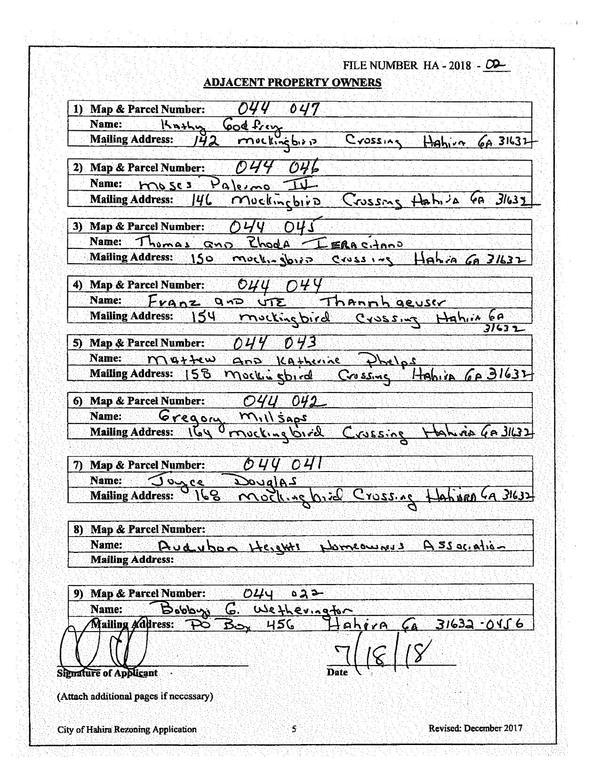 FILE NUMBER HA - 2018 - 02
ADJACENT PROPERTY OWNERS
1) Map & Parcel Number: 044 047
Name: Kathy Godfrey
Mailing Address: 142 Mockingbird Crossing Hahira GA 31632
2) Map & Parcel Number: 044 046
Name: Moses Palermo IV
Mailing Address: 146 Mockingbird Crossing Hahira GA 31632
3) Map & Parcel Number: 044 045
Name: Thomas and Rhoda IERACITANO
Mailing Address: 150 Mockingbird Crossing Hahira GA 31632
4) Map & Parcel Number: 044 044
Name: Franz and UTE Thannhaeuser
Mailing Address: 154 Mockingbird Crossing Hahira GA
31632
5) Map & Parcel Number: 044 043
Name: Mattew AND Katherine Phelps
Mailing Address: 158 Mockingbird Crossing Hahira GA 31632
6) Map & Parcel Number: 044 042
Name: Gregory Millsaps
Mailing Address: 164 Mockingbird Crossing Hahira GA 31632
7) Map & Parcel Number: 044 041
Name: Joyce Douglas
Mailing Address: 168 Mockingbird Crossing Hahira GA 31632
8) Map & Parcel Number:
Name: Audubon Heights Homeowners Association
Mailing Address:
9) Map & Parcel Number: 044 022
Name: Bobby G. Wetherington
Mailing Address: PO Box 456 Hahira GA 31632-0456
7/18/18
Signature of Applicant Date
(Attach additional pages if necessary)
City of Hahira Rezoning Application 5 Revised: December 2017